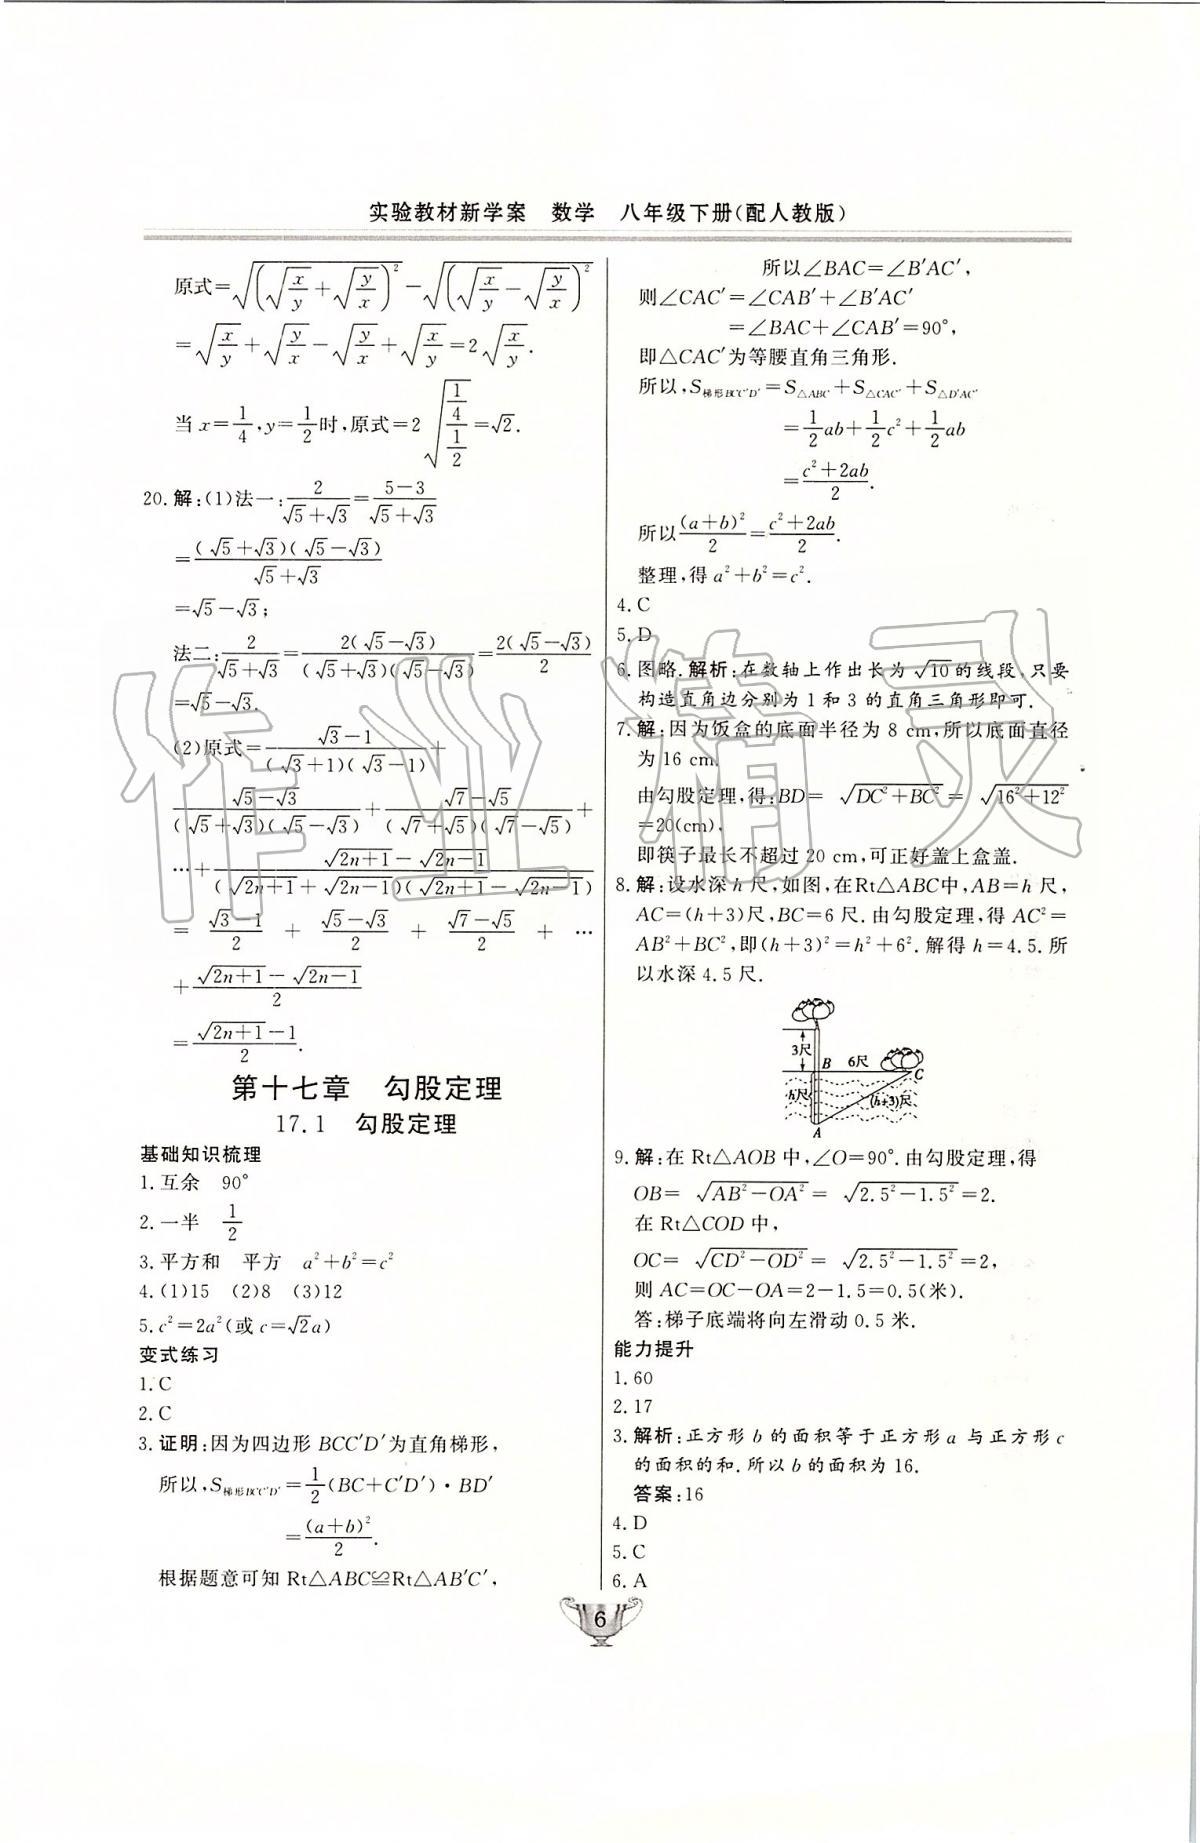 实验教材新学案 数学 八年级下册(配人教版)
原式=√((√(x/y)+√(y/x))²)-√((√(x/y)-√(y/x))²)
=√(x/y)+√(y/x)-√(y/x)+√(x/y)=2√(x/y).
当x=1/4,y=1/2时,原式=2√((1/4)/(1/2))=√2.
20.解:(1)法一:2/(√5+√3)=(5-3)/(√5+√3)
=(√5+√3)(√5-√3)/(√5+√3)
=√5-√3;
法二:2/(√5+√3)=2(√5-√3)/((√5+√3)(√5-√3))=2(√5-√3)/2
=√5-√3.
(2)原式=(√3-1)/((√3+1)(√3-1))+
(√5-√3)/((√5+√3)(√5-√3))+(√7-√5)/((√7+√5)(√7-√5))+
…+(√(2n+1)-√(2n-1))/((√(2n+1)+√(2n-1))(√(2n+1)-√(2n-1)))
=(√3-1)/2+(√5-√3)/2+(√7-√5)/2+…
+(√(2n+1)-√(2n-1))/2
=(√(2n+1)-1)/2.
第十七章 勾股定理
17.1 勾股定理
基础知识梳理
1.互余 90°
2.一半 1/2
3.平方和 平方 a²+b²=c²
4.(1)15 (2)8 (3)12
5.c²=2a²(或c=√2a)
变式练习
1.C
2.C
3.证明:因为四边形BCC′D′为直角梯形,
所以,S梯形BCC′D′=1/2(BC+C′D′)·BD′
=(a+b)²/2.
根据题意可知Rt△ABC≌Rt△AB′C′,
所以∠BAC=∠B′AC′,
则∠CAC′=∠CAB′+∠B′AC′
=∠BAC+∠CAB′=90°,
即△CAC′为等腰直角三角形.
所以,S梯形BCC′D′=S△ABC+S△CAC′+S△D′AC′
=1/2ab+1/2c²+1/2ab
=(c²+2ab)/2.
所以(a+b)²/2=(c²+2ab)/2.
整理,得a²+b²=c².
4.C
5.D
6.图略.解析:在数轴上作出长为√10的线段,只要
构造直角边分别为1和3的直角三角形即可.
7.解:因为饭盒的底面半径为8 cm,所以底面直径
为16 cm.
由勾股定理,得:BD=√(DC²+BC²)=√(16²+12²)
=20(cm),
即筷子最长不超过20 cm,可正好盖上盒盖.
8.解:设水深h尺,如图,在Rt△ABC中,AB=h尺,
AC=(h+3)尺,BC=6尺.由勾股定理,得AC²=
AB²+BC²,即(h+3)²=h²+6².解得h=4.5.所
以水深4.5尺.
3尺 B 6尺 C
h尺 (h+3)尺
A
9.解:在Rt△AOB中,∠O=90°.由勾股定理,得
OB=√(AB²-OA²)=√(2.5²-1.5²)=2.
在Rt△COD中,
OC=√(CD²-OD²)=√(2.5²-1.5²)=2,
则AC=OC-OA=2-1.5=0.5(米).
答:梯子底端将向左滑动0.5米.
能力提升
1.60
2.17
3.解析:正方形b的面积等于正方形a与正方形c
的面积的和.所以b的面积为16.
答案:16
4.D
5.C
6.A
6
作业精灵